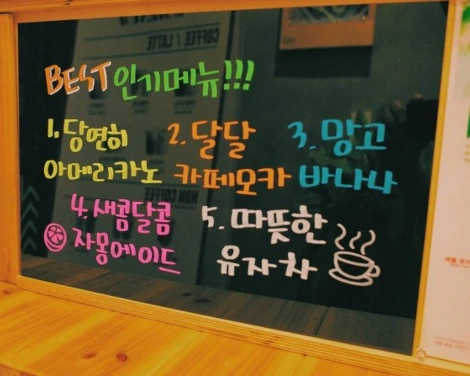 BEST 인기메뉴!!!
1. 당연히
아메리카노
2. 달달
카페모카
3. 망고
바나나
4. 새콤달콤
자몽에이드
5. 따뜻한
유자차
COFFEE / LATTE
NON COFFEE